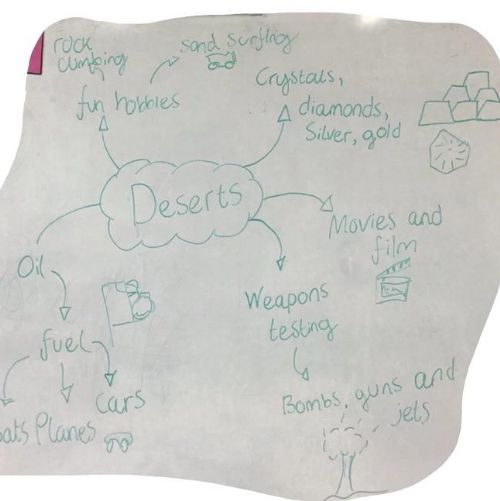 rock
climbing
sand surfing
fun hobbies
Crystals,
diamonds,
Silver, gold
Deserts
Movies and
film
Oil
Weapons
testing
fuel
Cars
Planes
Bombs, guns and
jets